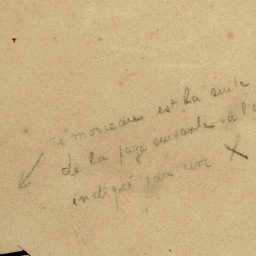 ce morceau est la suite
de la page suivante à l'
indiqué par une X